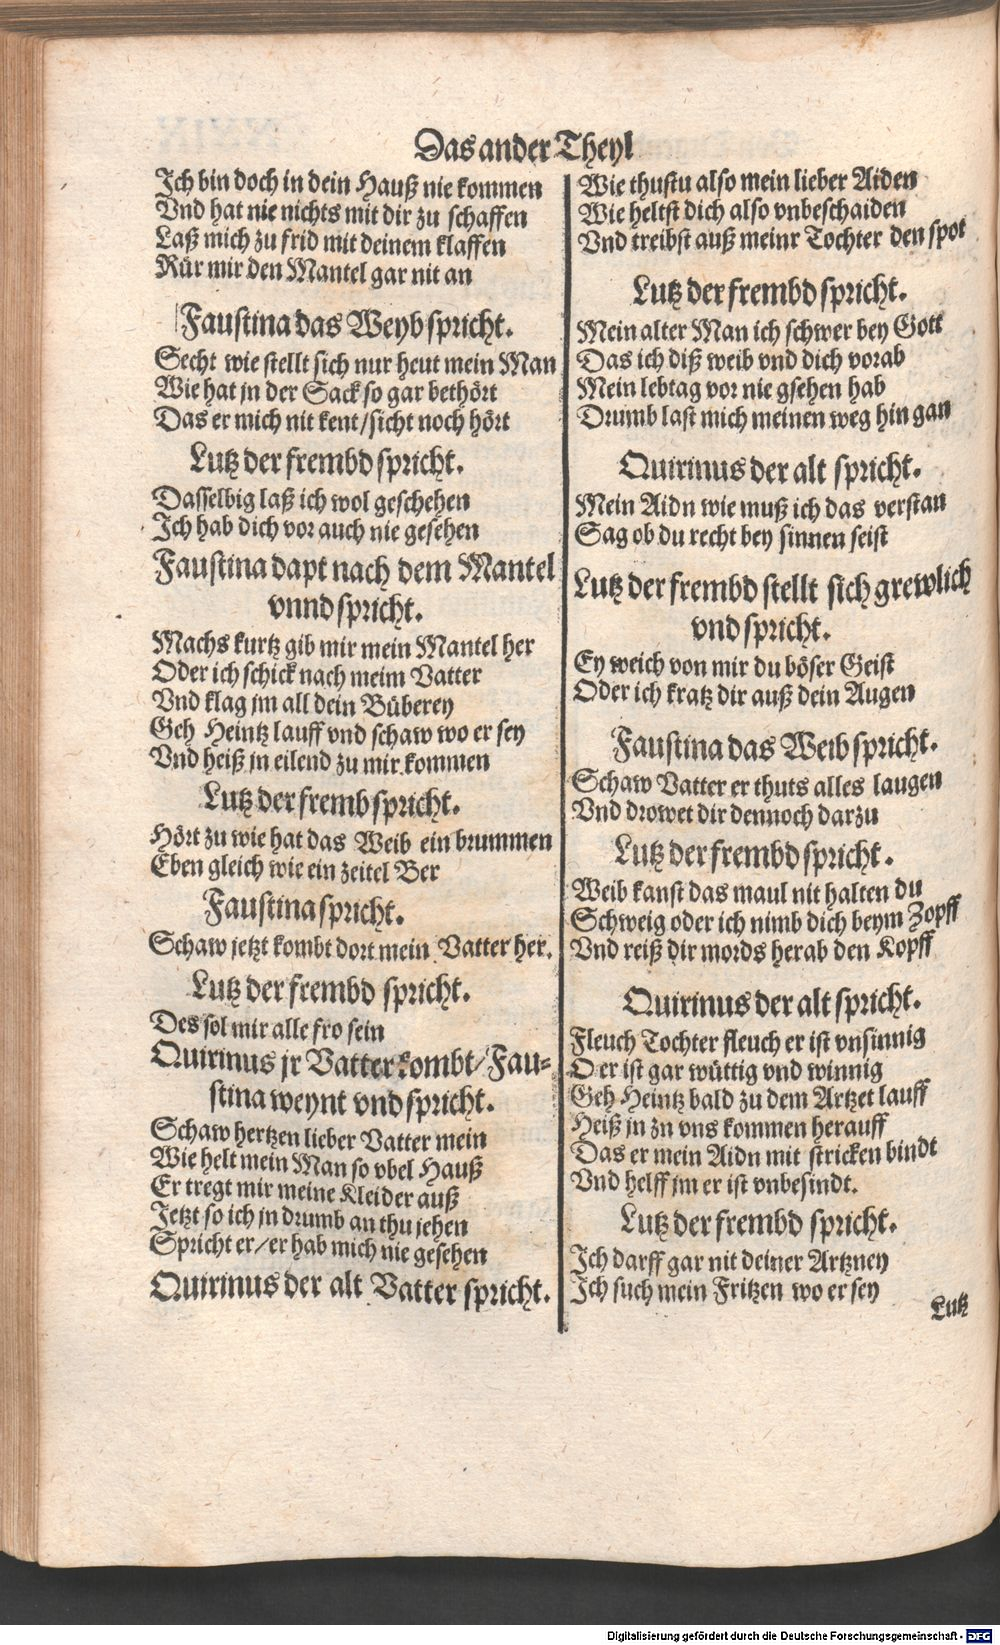 Das ander Theyl
Ich bin doch in dein Hauß nie kommen
Vnd hat nie nichts mit dir zu schaffen
Laß mich zu frid mit deinem klaffen
Rür mir den Mantel gar nit an
Faustina das Weyb spricht.
Secht wie stellt sich nur heut mein Man
Wie hat jn der Sack so gar bethört
Das er mich nit kent/sicht noch hört
Lutz der frembd spricht.
Dasselbig laß ich wol geschehen
Ich hab dich vor auch nie gesehen
Faustina dapt nach dem Mantel
vnnd spricht.
Machs kurtz gib mir mein Mantel her
Oder ich schick nach meim Vatter
Vnd klag jm all dein Büberey
Geh Heintz lauff vnd schaw wo er sey
Vnd heiß jn eilend zu mir kommen
Lutz der fremb spricht.
Hört zu wie hat das Weib ein brummen
Eben gleich wie ein zeitel Ber
Faustina spricht.
Schaw jetzt kombt dort mein Vatter her.
Lutz der frembd spricht.
Des sol mir alle fro sein
Quirinus jr Vatter kombt/Fau-
stina weynt vnd spricht.
Schaw hertzen lieber Vatter mein
Wie helt mein Man so vbel Hauß
Er tregt mir meine Kleider auß
Jetzt so ich jn drumb an thu jehen
Spricht er/er hab mich nie gesehen
Quirinus der alt Vatter spricht.
Wie thustu also mein lieber Aiden
Wie heltst dich also vnbeschaiden
Vnd treibst auß meinr Tochter den spot
Lutz der frembd spricht.
Mein alter Man ich schwer bey Gott
Das ich diß weib vnd dich vorab
Mein lebtag vor nie gsehen hab
Drumb last mich meinen weg hin gan
Quirinus der alt spricht.
Mein Aidn wie muß ich das verstan
Sag ob du recht bey sinnen seist
Lutz der frembd stellt sich grewlich
vnd spricht.
Ey weich von mir du böser Geist
Oder ich kratz dir auß dein Augen
Faustina das Weib spricht.
Schaw Vatter er thuts alles laugen
Vnd drowet dir dennoch darzu
Lutz der frembd spricht.
Weib kanst das maul nit halten du
Schweig oder ich nimb dich beym Zopff
Vnd reiß dir mords herab den Kopff
Quirinus der alt spricht.
Fleuch Tochter fleuch er ist vnsinnig
O er ist gar wüttig vnd winnig
Geh Heintz bald zu dem Artzet lauff
Heiß jn zn vns kommen herauff
Das er mein Aidn mit stricken bindt
Vnd helff jm er ist vnbesindt.
Lutz der frembd spricht.
Ich darff gar nit deiner Artzney
Ich such mein Fritzen wo er sey
Lutz
Digitalisierung gefördert durch die Deutsche Forschungsgemeinschaft - DFG